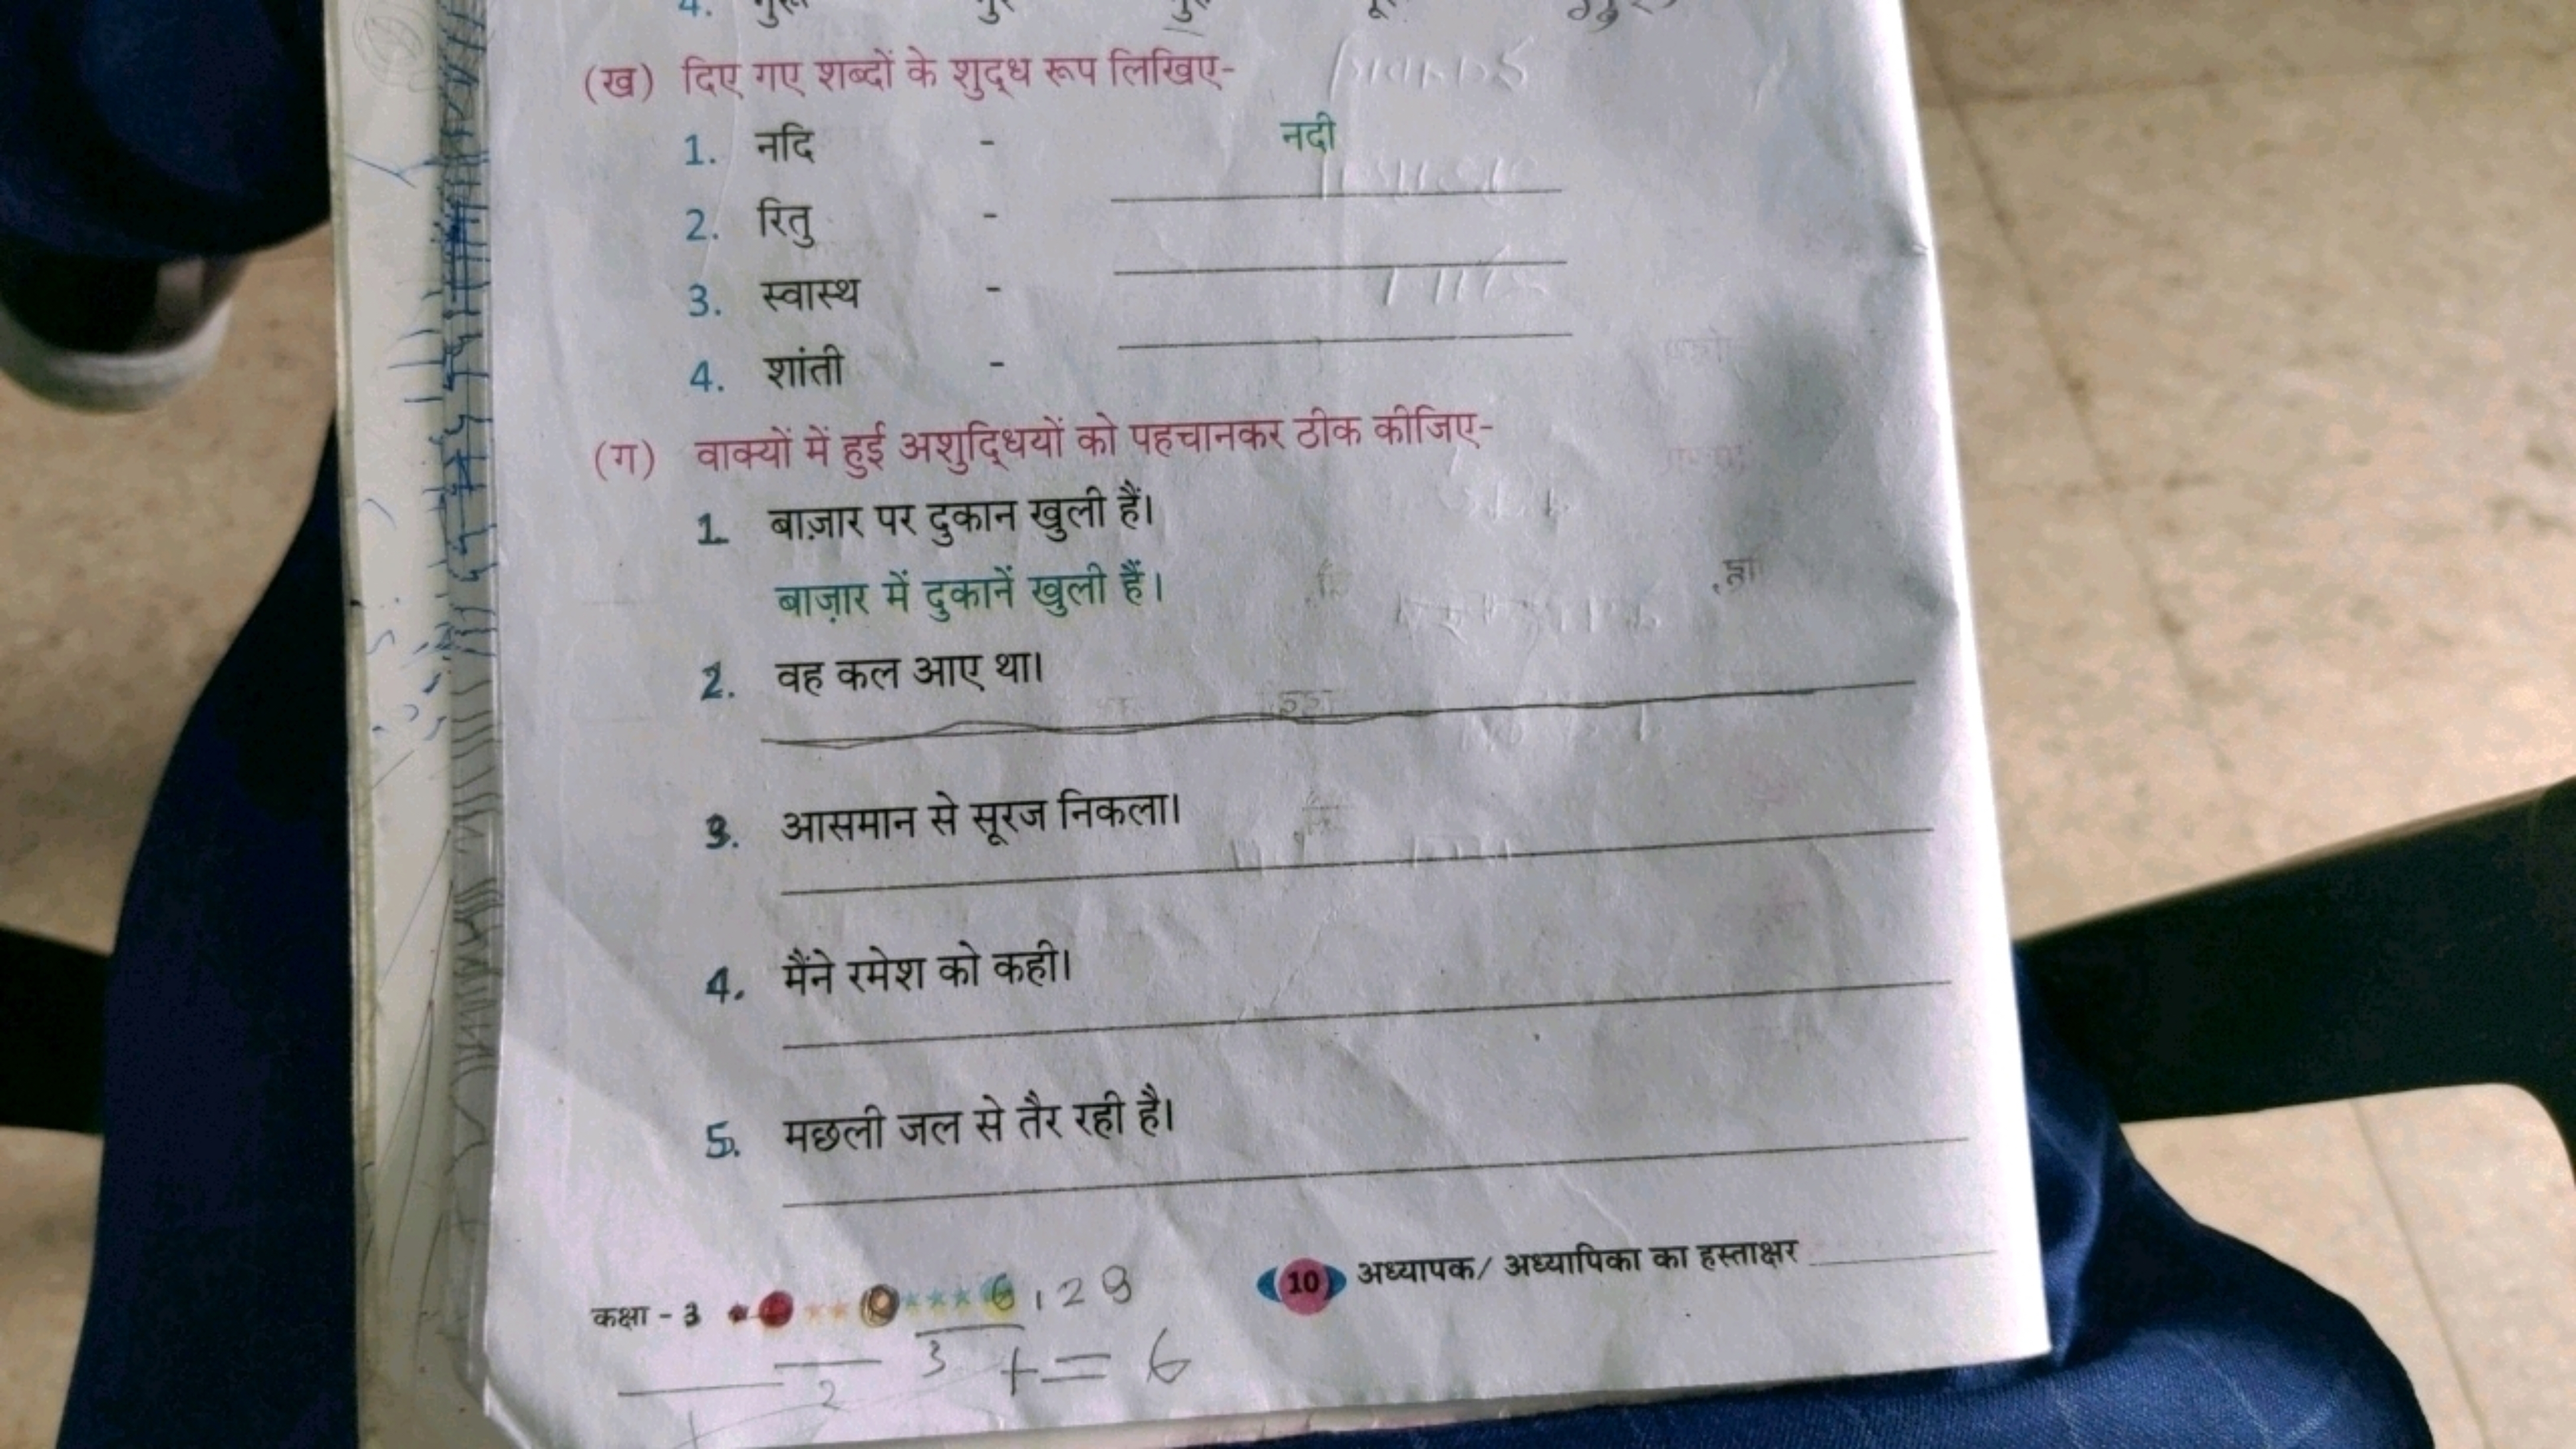 4. गुरू
(ख) दिए गए शब्दों के शुद्ध रूप लिखिए-
1. नदि - नदी
2. रितु -
3. स्वास्थ -
4. शांती -
(ग) वाक्यों में हुई अशुद्धियों को पहचानकर ठीक कीजिए-
1. बाज़ार पर दुकान खुली हैं।
बाज़ार में दुकानें खुली हैं।
2. वह कल आए था।
3. आसमान से सूरज निकला।
4. मैंने रमेश को कही।
5. मछली जल से तैर रही है।
कक्षा - 3 6,28 10 अध्यापक/ अध्यापिका का हस्ताक्षर
3 + = 6
2
1